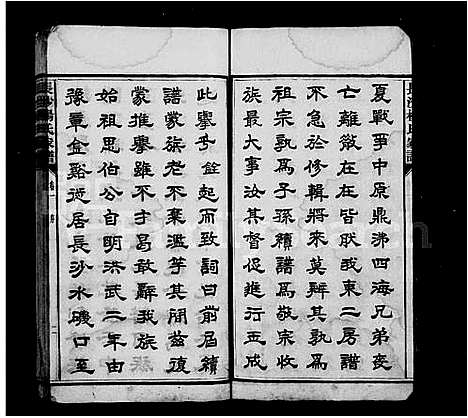 長沙楊氏家譜
夏戰爭中原鼎沸四海兄弟喪
亡離散在在皆然我東二房譜
不急於修輯將來莫辨其孰爲
祖宗孰爲子孫續譜爲敬宗收
族最大事汝其督促進行玉成
此舉銓起而致詞曰前屆續
譜蒙族老不棄濫竽其間茲復
蒙推舉雖不才曷敢辭我族
始祖思伯公自明洪武二年由
豫章金谿徙居長沙水磯口至
長沙楊氏家譜